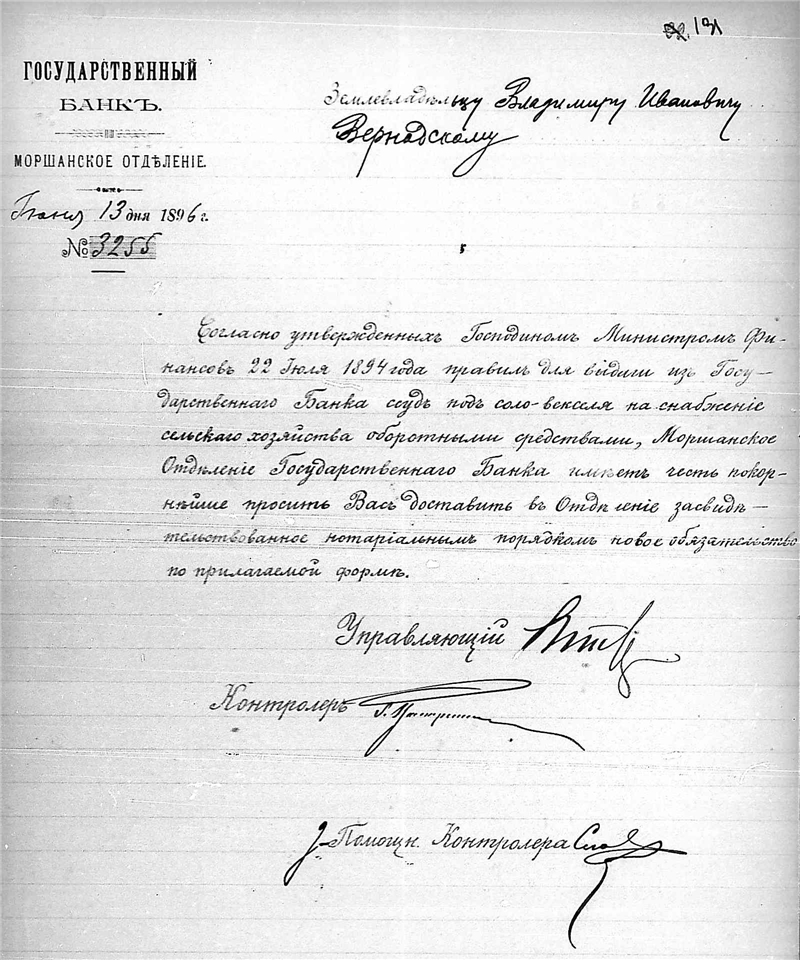 131
ГОСУДАРСТВЕННЫЙ
БАНКЪ.
МОРШАНСКОЕ ОТДѢЛЕНІЕ.
13 дня 1896 г.
№ 3255
Землевладѣльцу Владимиру Ивановичу
Вернадскому
Согласно утвержденныхъ Господиномъ Министромъ Фи-
нансовъ 22 Іюля 1894 года правилъ для выдачи изъ Госу-
дарственнаго Банка ссудъ подъ соло-векселя на снабженіе
сельскаго хозяйства оборотными средствами, Моршанское
Отдѣленіе Государственнаго Банка имѣетъ честь покор-
нѣйше просить Васъ доставить въ Отдѣленіе засвидѣ-
тельствованное нотаріальнымъ порядкомъ новое обязательство
по прилагаемой формѣ.
Управляющій
Контролеръ
Помощн. Контролера